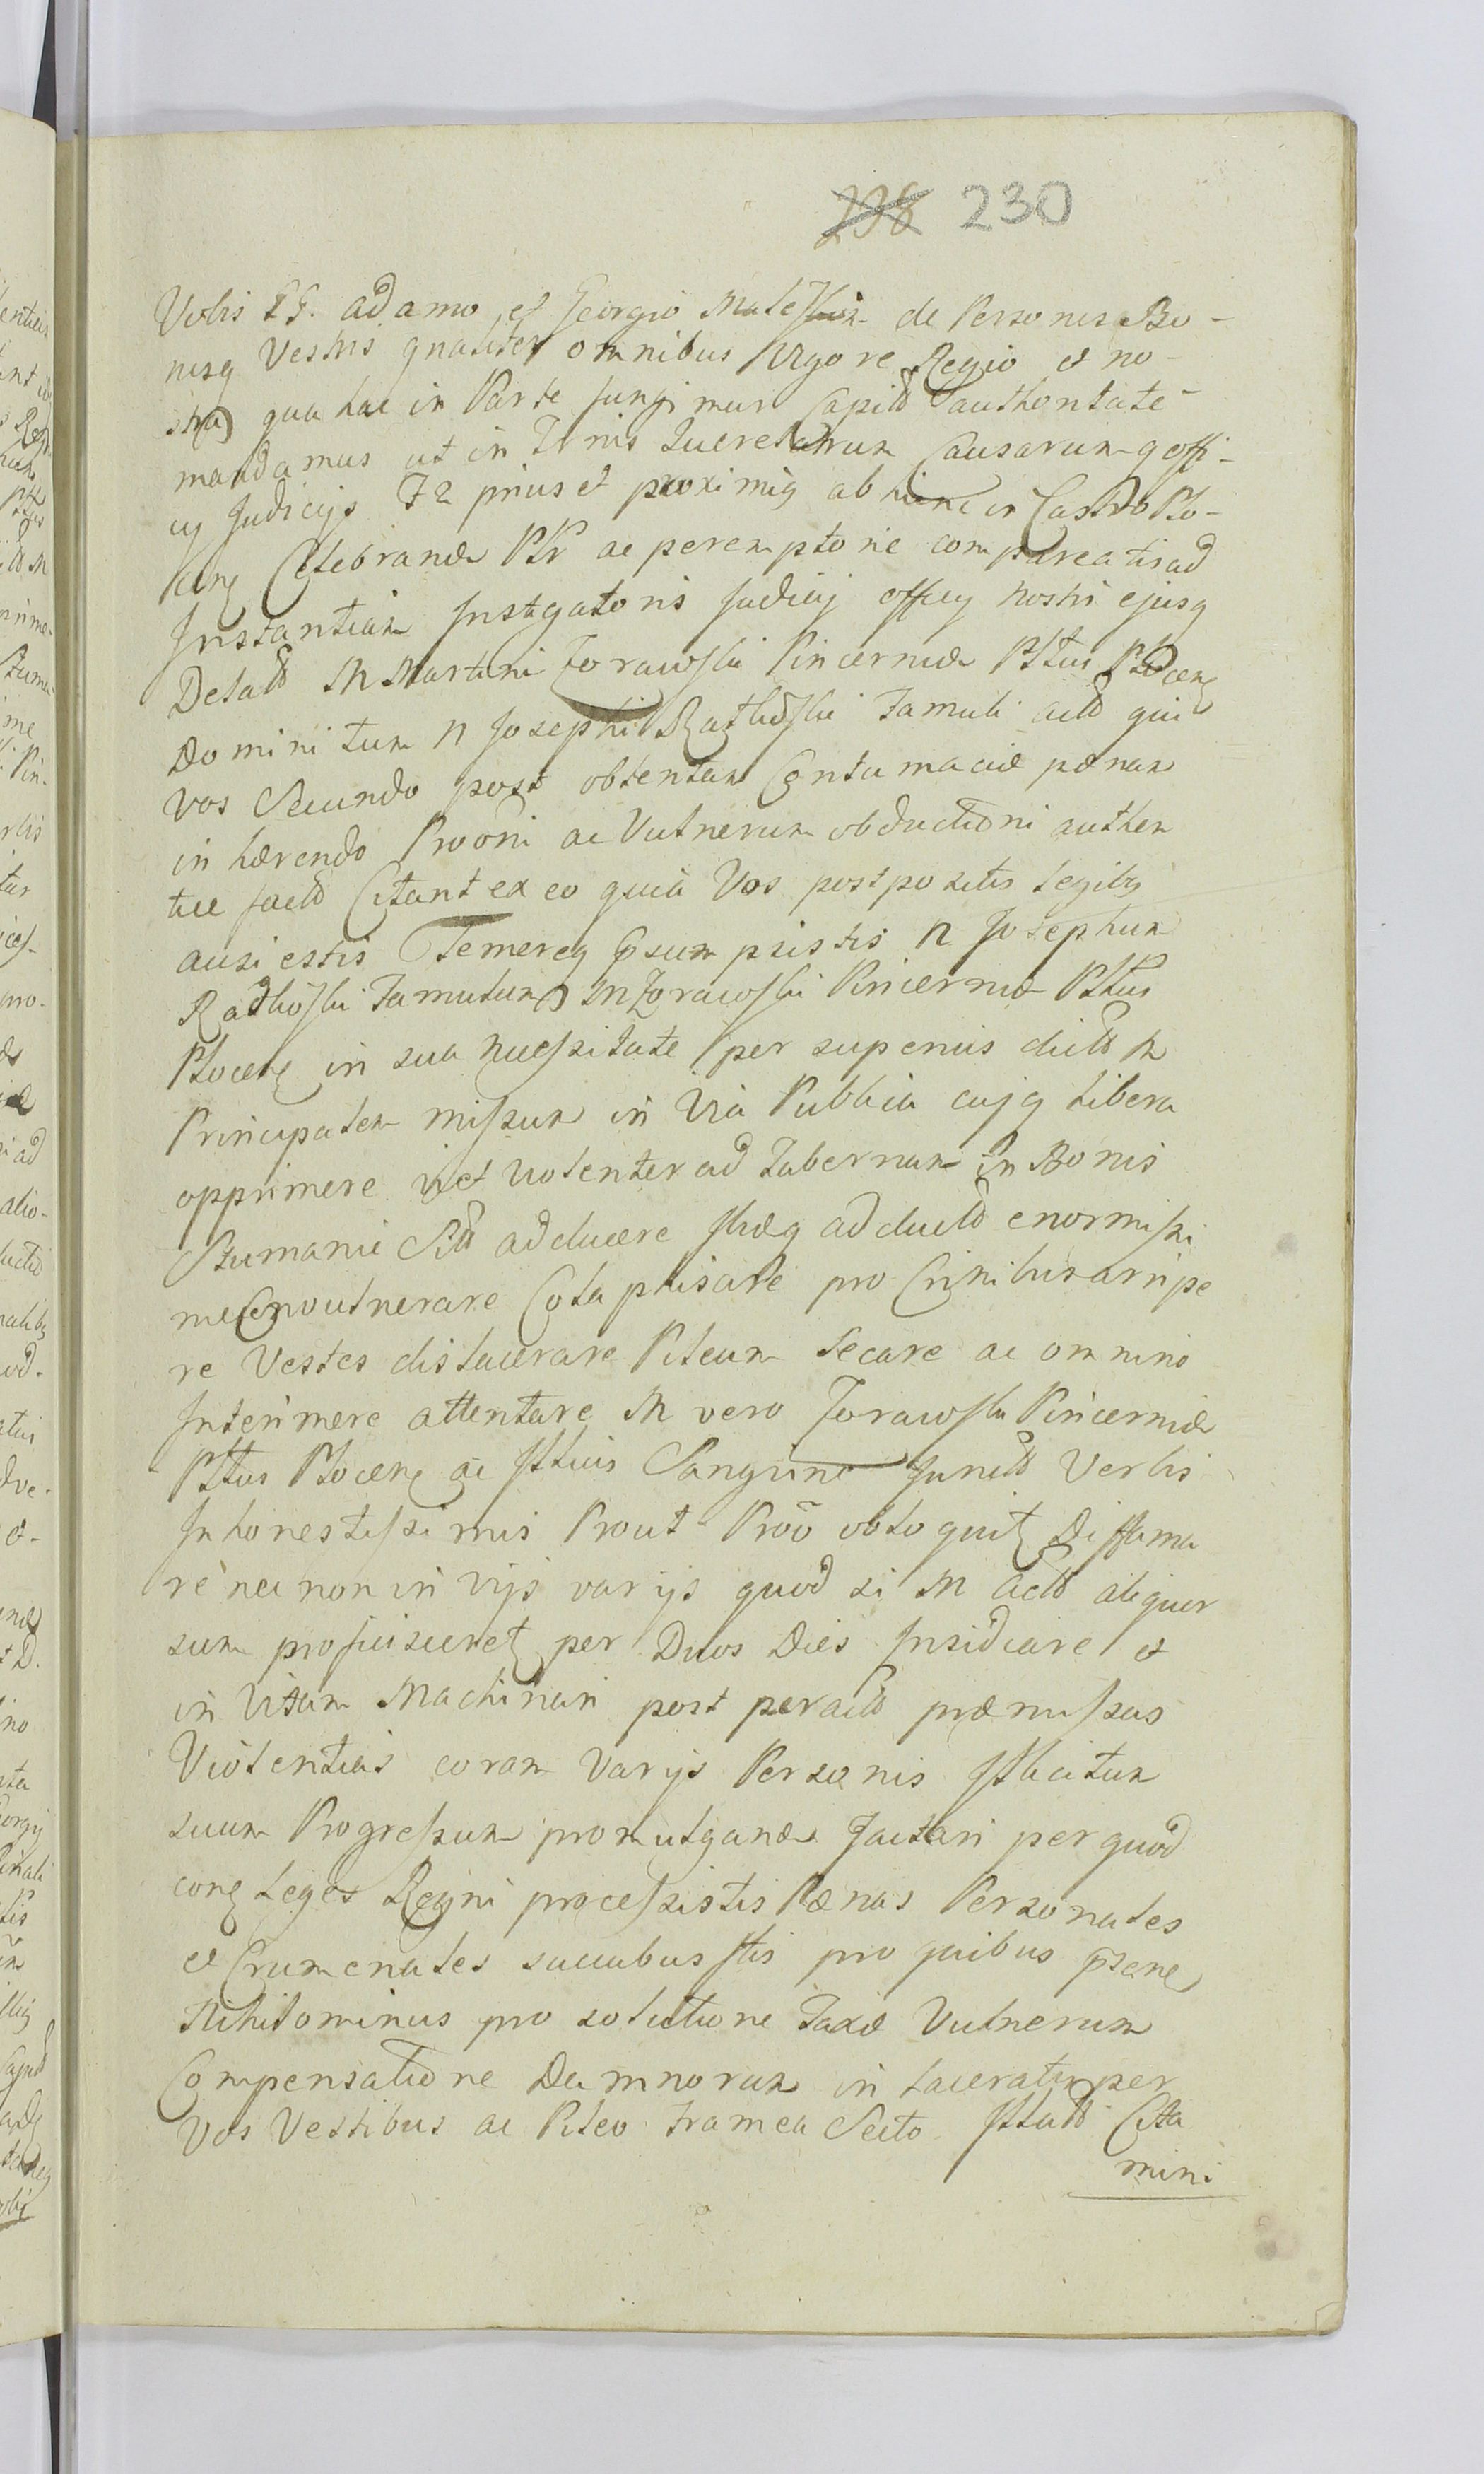 238 230
Vobis GG. Adamo et Georgio Maleskim de Personis Bo-
nisq Vestris gnaliter omnibus Vigore Regio et no-
stra qua hac in Parte fungimur Capitli authoritate
mandamus ut in Trnis Querelarum Causarumq offi-
cij Judicijs Fa prius et proximiq ab hinc in Castro Plo-
cen Celebrand PSP ac peremptorie compareatis ad
Instantiam Instigatoris Judicij officij Nostri ejusq
Delato M Martini Zorawski Pincernæ Pltus Plocen
Domini tum N Josephi Raczkoski Famuli acto qui
Vos Secundo post obtentam Contumaciæ pænam
in hærendo Prooni ac Vulnerum obductioni authen
tice facto Citant ex eo quia Vos postpositis legibq
ausi estis Temereq Psumpsistis N Josephum
Radkoski Famulum M Zorawski Pincernæ Pltus
Plocen in sua necessitate per superius dicto M
Principalem missum in Via Publica cujq libera
opprimere vi et violenter ad Tabernam in Bonis
Szumanie Sito adducere ibidq adducto enormissi
me Convulnerare Colaphisare pro Crinibus arripe
re Vestes dislacerare Pileum Secare ac omnino
Interimere attentare M vero Zorawski Pincernæ
Pltus Plocen ac Illius Sanguine Juncto Verbis
Inhonestissimis Prout Proo obloquit Diffama
re nec non in vijs varijs quod si M acto aliquor
sum proficisceret per Duos Dies Insidiare et
in Vitam Machinari post peracto præmissas
Violentias coram Varijs Personis Illicitum
suum Progressum promulgand Jactari per quod
con leges Regni processistis Pænas Personales
et Crumenales succubuistis pro quibus psene
Nihilominus pro solutione Taxæ Vulnerum
Compensatione Damnorum in laceratis per
Vos Vestibus ac Pileo Framea Secto Illato Cita
mini